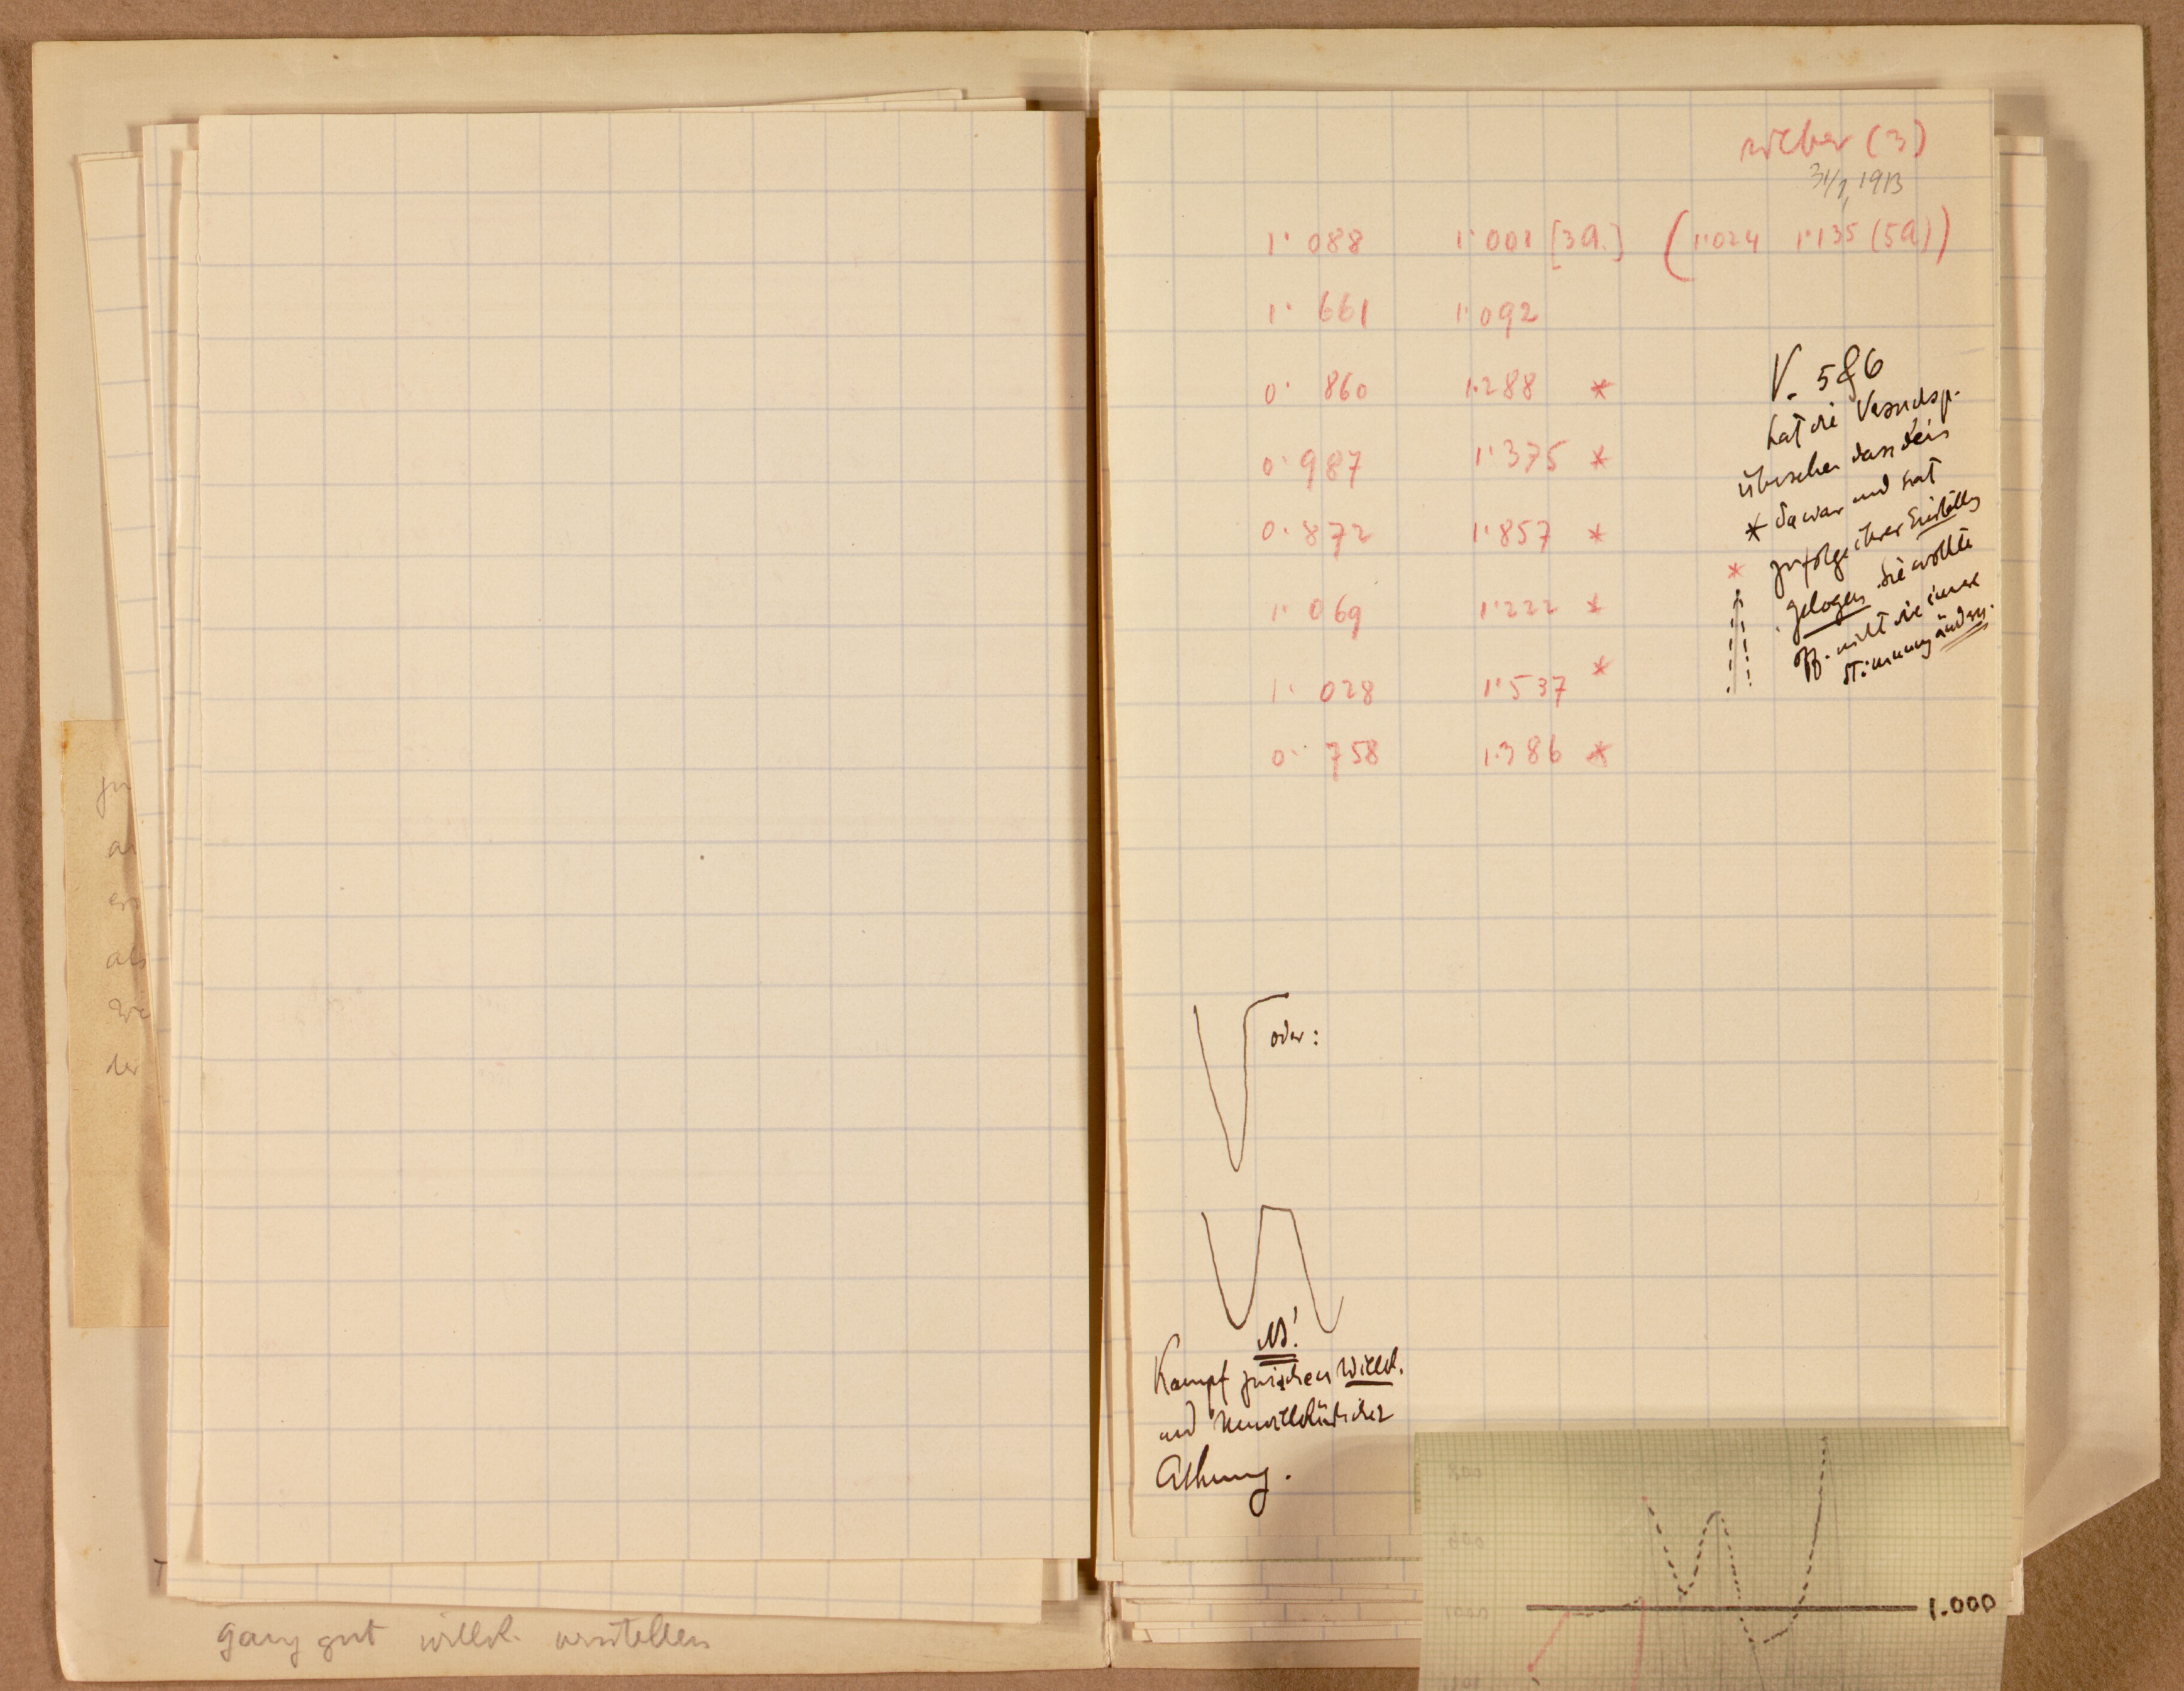 (3)
1913
1· 088 1·001 [3A.] (1·024 1·135 (5A))
1· 661 1·092
0· 860 1·288 *
0· 987 1·375 *
0· 872 1·857 *
1· 069 1·222 *
1· 028 1·537 *
0· 758 1·386 *
V. 5&6
hat die Versuchsp.
übersehen dass kein
* da war und hat
* zufolge ihrer Einstellg
gelogen. Sie wollte
nicht die
Stimmung ändern.
oder:
NB!
Kampf zwischen Willk.
und unwillkürlicher
Athmung.
1.000
zu
als
der
ganz gut willk. verstellen